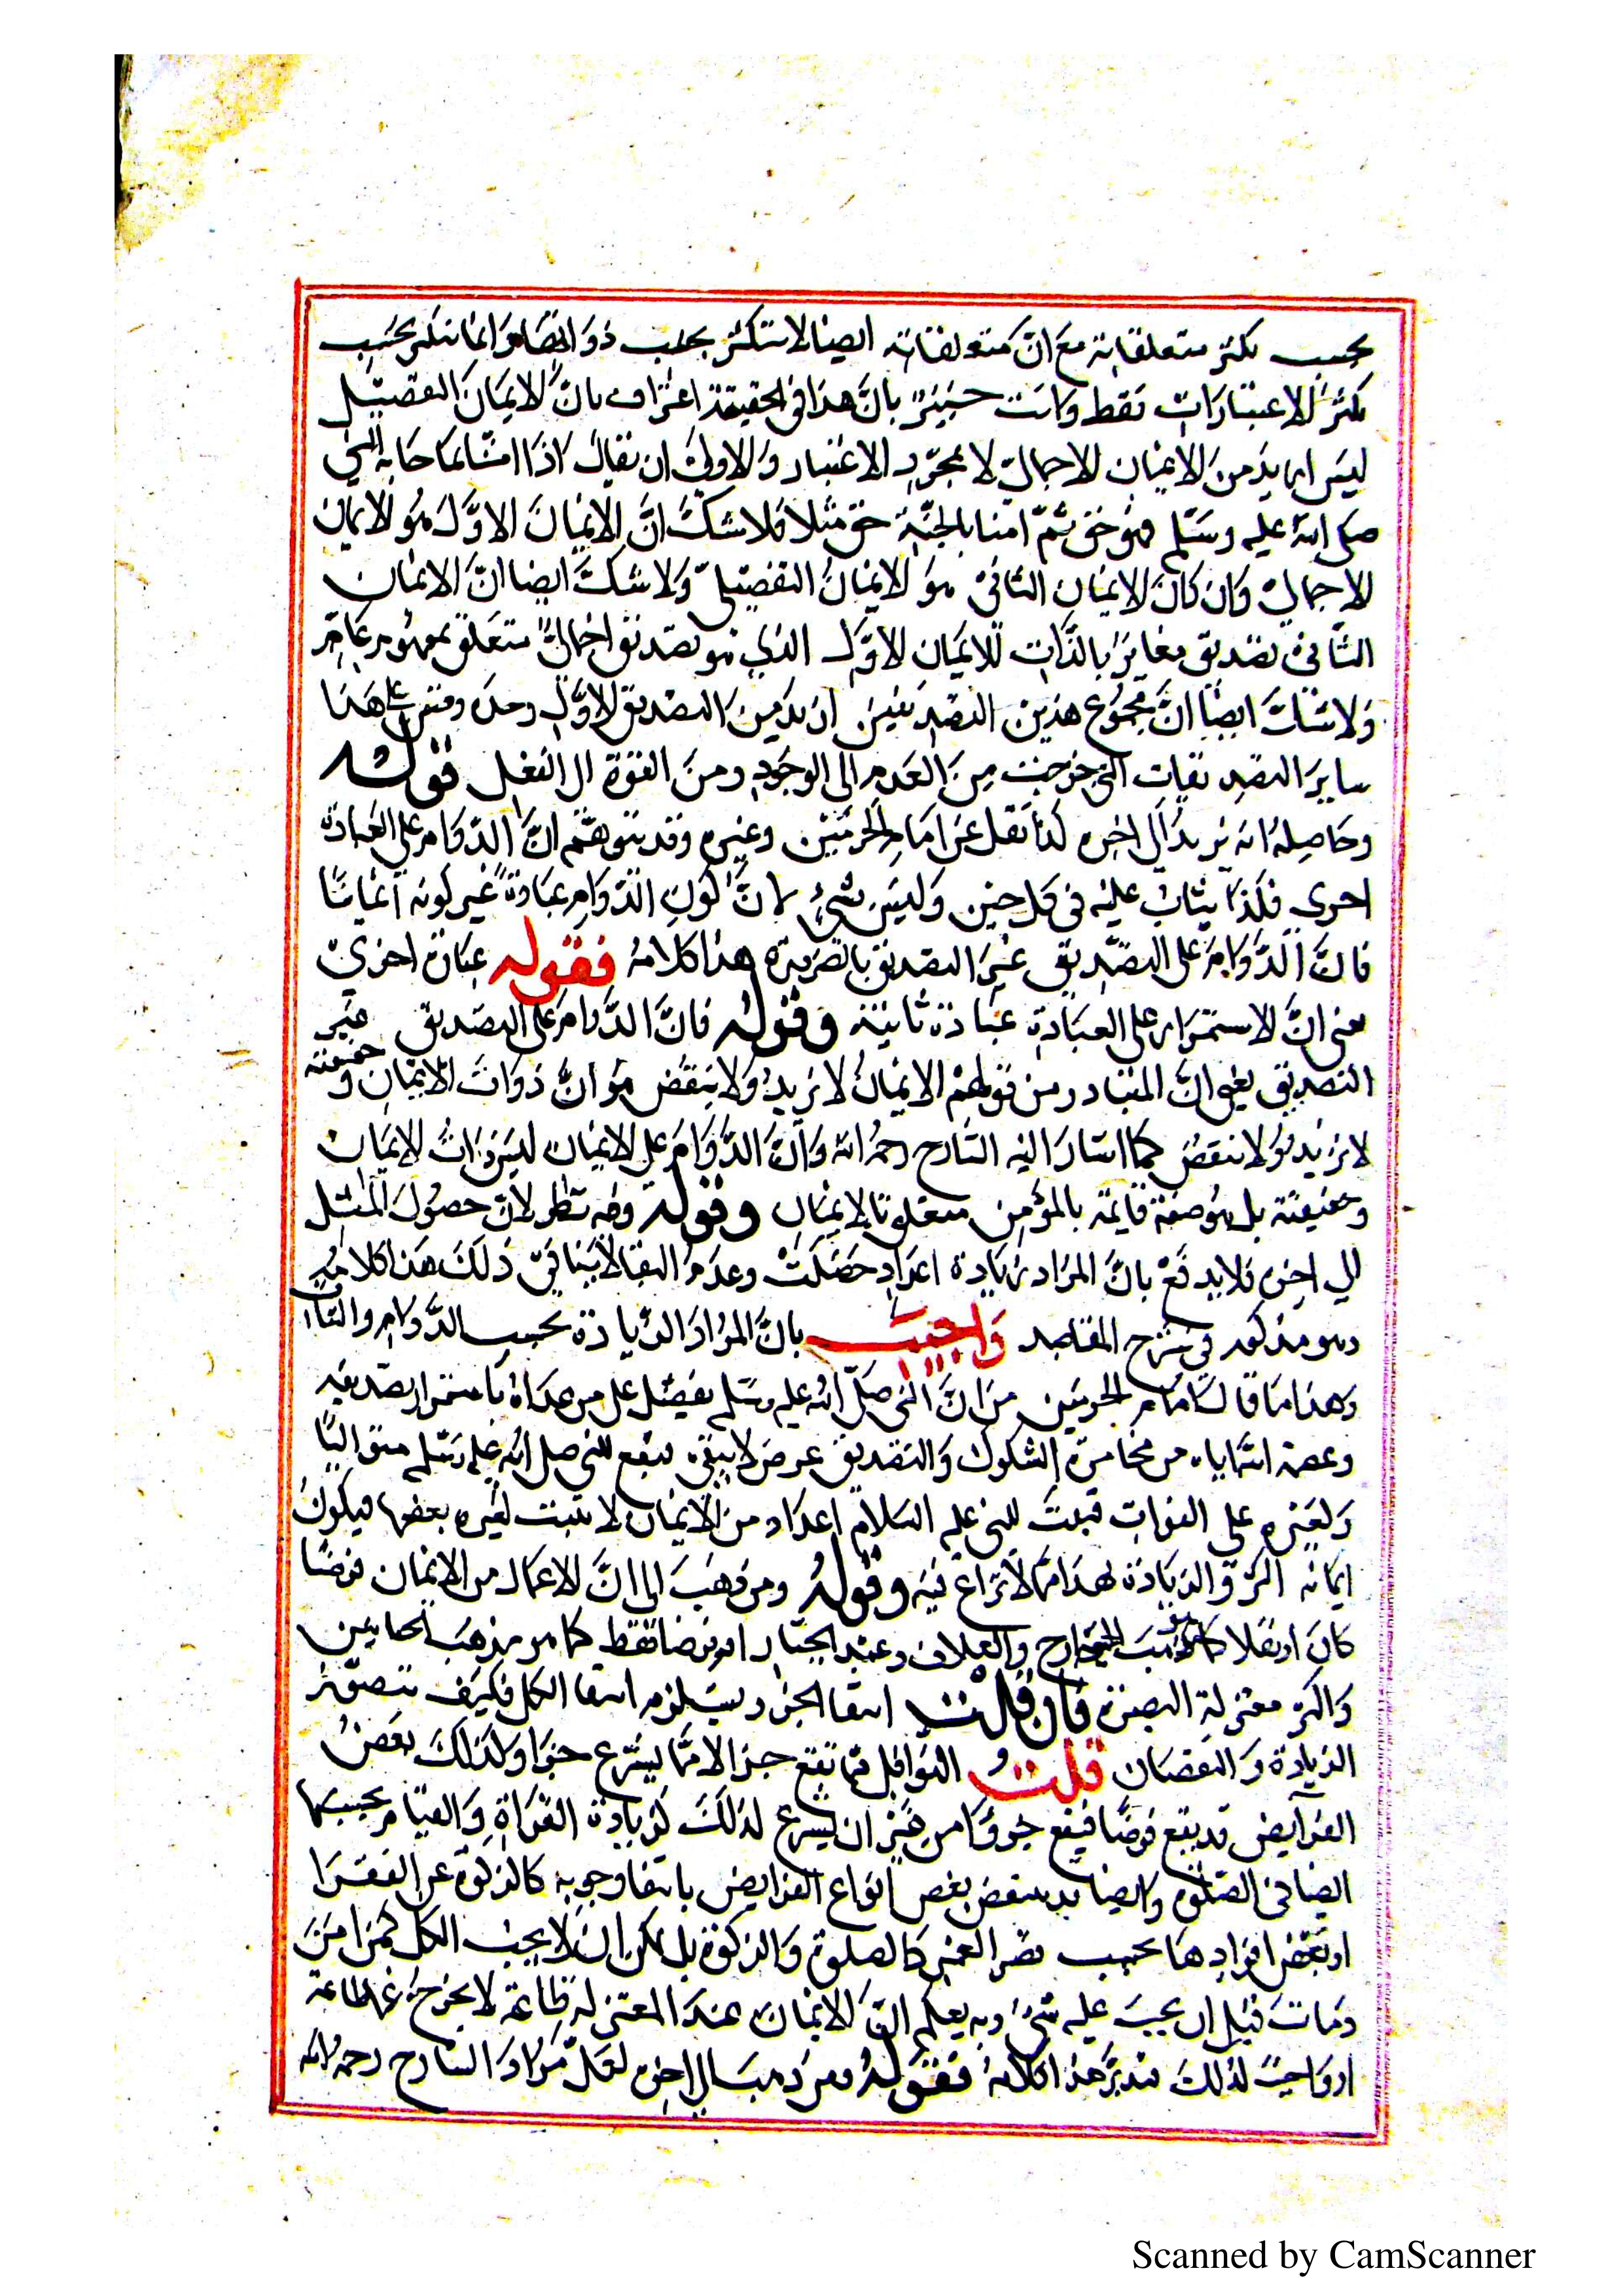 بحسب تكثر متعلقاته مع ان متعلقاته ايضا لا تتكثر بحسب ذواتها وانما تتكثر بحسب
تكثر الاعتبارات فقط وانت خبير بان هذا في الحقيقة اعتراف بان الايمان التفصيلي
ليس ازيد من الايمان الاجمالي الا بمجرد الاعتبار والاولى ان يقال اذا امنا بما جاء به النبي
صلى الله عليه وسلم فهو حق ثم امنا بالجنة حق مثلا فلا شك ان الايمان الاول هو الايمان
الاجمالي وان كان الايمان الثاني هو الايمان التفصيلي ولا شك ايضا ان الايمان
الثاني تصديق مغاير بالذات للايمان الاول الذي هو تصديق اجمالي متعلق بمفهوم عام
ولا شك ايضا ان مجموع هذين التصديقين ازيد من التصديق الاول وحده وقس على هذا
ساير التصديقات التي خرجت من العدم الى الوجود ومن القوة الى الفعل قوله
وحاصله انه يزيد الى اخره كذا نقل عن امام الحرمين وغيره وقد يتوهم ان الدوام على العبادة
اخرى فلذا يثاب عليه في كل حين وليس بشيء لان كون الدوام عبادة غير كونه ايمانا
فان الدوام على التصديق غير التصديق بالضرورة هذا كلامه فقوله عبادة اخرى
معنى ان الاستمرار على العبادة عبادة ثانية وقوله فان الدوام على التصديق غير
التصديق يعني ان المتبادر من قولهم الايمان لا يزيد ولا ينقص هو ان ذوات الايمان وحقيقته
لا يزيد ولا ينقص كما اشار اليه الشارح رحمه الله وان الدوام على الايمان ليس ذات الايمان
وحقيقته بل هو صفة قايمة بالمؤمن متعلقة بالايمان وقوله وفيه نظر لان حصول المثل
الى اخره فلا يدفع بان المراد زيادة اعداد حصلت وعدم البقا لا ينافي ذلك هذا كلامه
وهو مذكور في شرح المقاصد واجيب بان المراد الزيادة بحسب الدوام والثبات
وهذا ما قال امام الحرمين من ان النبي صلى الله عليه وسلم يفضل على من عداه باستمرار تصديقه
وعصمة الله اياه من مخامرة الشكوك والتصديق عرض لا يبقى فيقع للنبي صلى الله عليه وسلم متواليا
ولغيره على الفترات فثبت للنبي عليه السلام اعداد من الايمان لا يثبت لغيره بعضها فيكون
ايمانه اكثر والزيادة لهذا مما لا نزاع فيه وقوله ومن ذهب الى ان الاعمال من الايمان فرضا
كان او نفلا كما هو مذهب الخوارج والعلاف وعبد الجبار او فرضا فقط كما هو مذهب الجبايين
واكثر معتزلة البصرة فان قلت انتفا الجزء يستلزم انتفا الكل فكيف يتصور
الزيادة والنقصان قلت النوافل مما تقع جزا لا مما يشرع جزا ولذلك بعض
الفرايض قد يقع فرضا فيقع جزؤا من غير ان يشرع لذلك كزيادة القراة والقيام بحسبها
ايضا في الصلوة وايضا قد ينتقص بعض انواع الفرايض بانتفا وجوبه كالزكوة عن الفقرا
او بعض افرادها بحسب قصر العمر كالصلوة والزكوة بل يمكن ان لا يجب الكل كمن امن
ومات قبل ان يجب عليه شيء وبه يعلم ان الايمان عند المعتزلة طاعة لا يخرج عنها طاعة
او واجب لذلك فتدبر هذا كلامه فقوله ومن ذهب الى اخره لعل مراد الشارح رحمه الله
Scanned by CamScanner